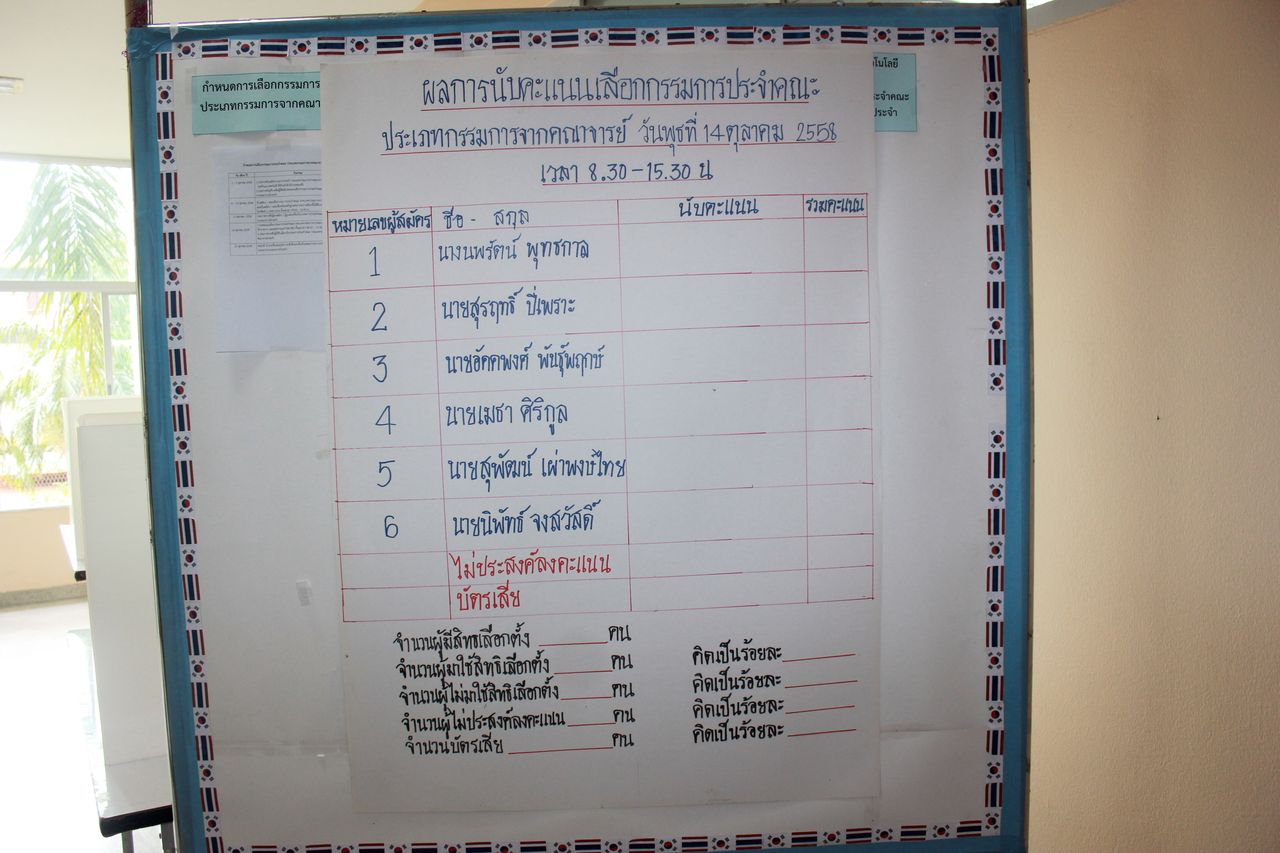 กำหนดการเลือกกรรมการ
ประเภทกรรมการจากคณา
โนโลยี
ระจำคณะ
ประจำ
ผลการนับคะแนนเลือกกรรมการประจำคณะ
ประเภทกรรมการจากคณาจารย์ วันพุธที่ 14 ตุลาคม 2558
เวลา 8.30 - 15.30 น
หมายเลขผู้สมัคร ชื่อ - สกุล นับคะแนน รวมคะแนน
1 นางนพรัตน์ พุทธกาล
2 นายสุรฤทธิ์ ปี่เพราะ
3 นายอัคคพงศ์ พันธุ์พฤกษ์
4 นายเมธา ศิริกูล
5 นายสุพัฒน์ เผ่าพงษ์ไทย
6 นายนิพัทธ์ จงสวัสดิ์
ไม่ประสงค์ลงคะแนน
บัตรเสีย
จำนวนผู้มีสิทธเลือกตั้ง ________ คน
จำนวนผู้มาใช้สิทธิเลือกตั้ง ________ คน คิดเป็นร้อยละ ________
จำนวนผู้ไม่มาใช้สิทธิเลือกตั้ง ________ คน คิดเป็นร้อยละ ________
จำนวนผู้ไม่ประสงค์ลงคะแนน ________ คน คิดเป็นร้อยละ ________
จำนวนบัตรเสีย ________ คน คิดเป็นร้อยละ ________